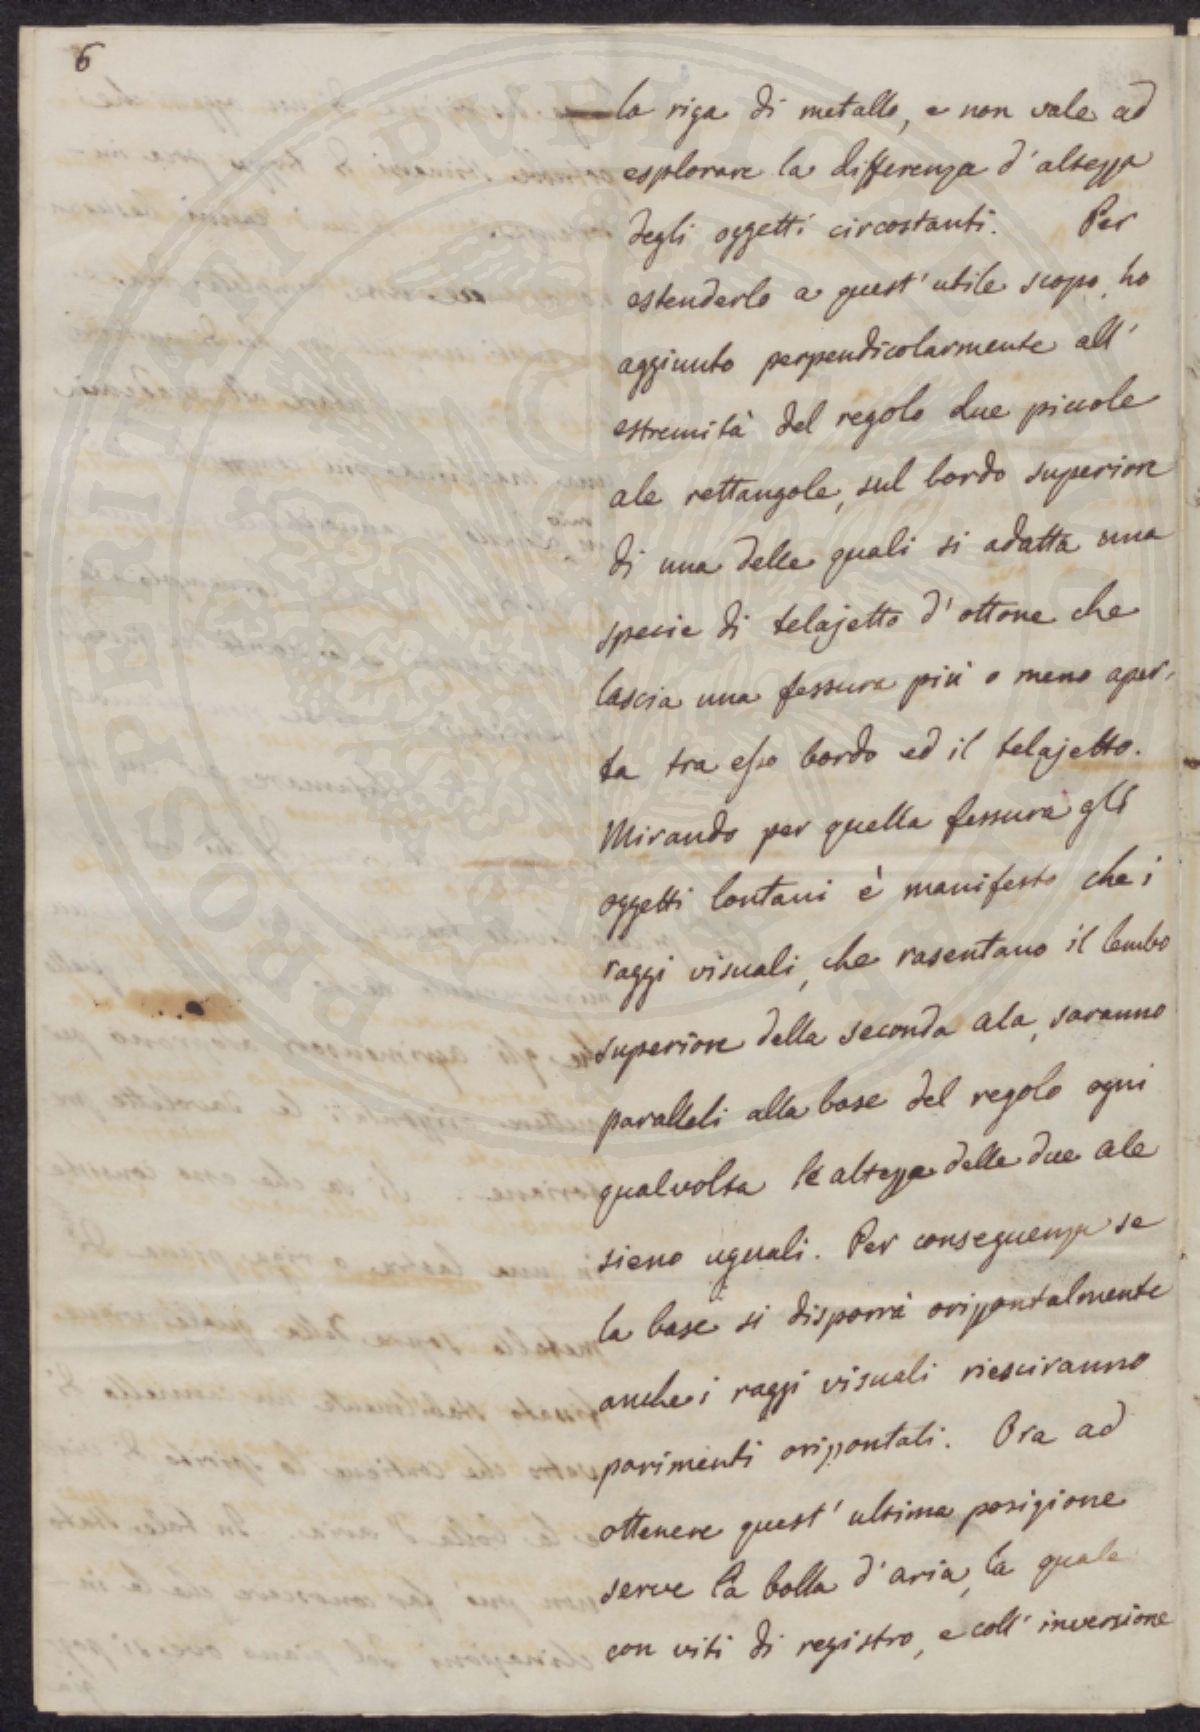 6
la riga di metallo, e non vale ad
esplorare la differenza d'altezza
degli oggetti circostanti. Per
estenderlo a quest'utile scopo, ho
aggiunto perpendicolarmente all'
estremità del regolo due piccole
ale rettangole, sul bordo superiore
di una delle quali si adatta una
specie di telajetto d'ottone che
lascia una fessura più o meno aper-
ta tra esso bordo ed il telajetto.
Mirando per quella fessura gli
oggetti lontani è manifesto che i
raggi visuali, che rasentano il lembo
superiore della seconda ala, saranno
paralleli alla base del regolo ogni
qualvolta le altezze delle due ale
sieno uguali. Per conseguenza se
la base si disporrà orizzontalmente
anche i raggi visuali riesciranno
parimenti orizzontali. Ora ad
ottenere quest'ultima posizione
serve la bolla d'aria, la quale
con viti di registro, e coll'inversione
PROSPERITATI PVBLICAE